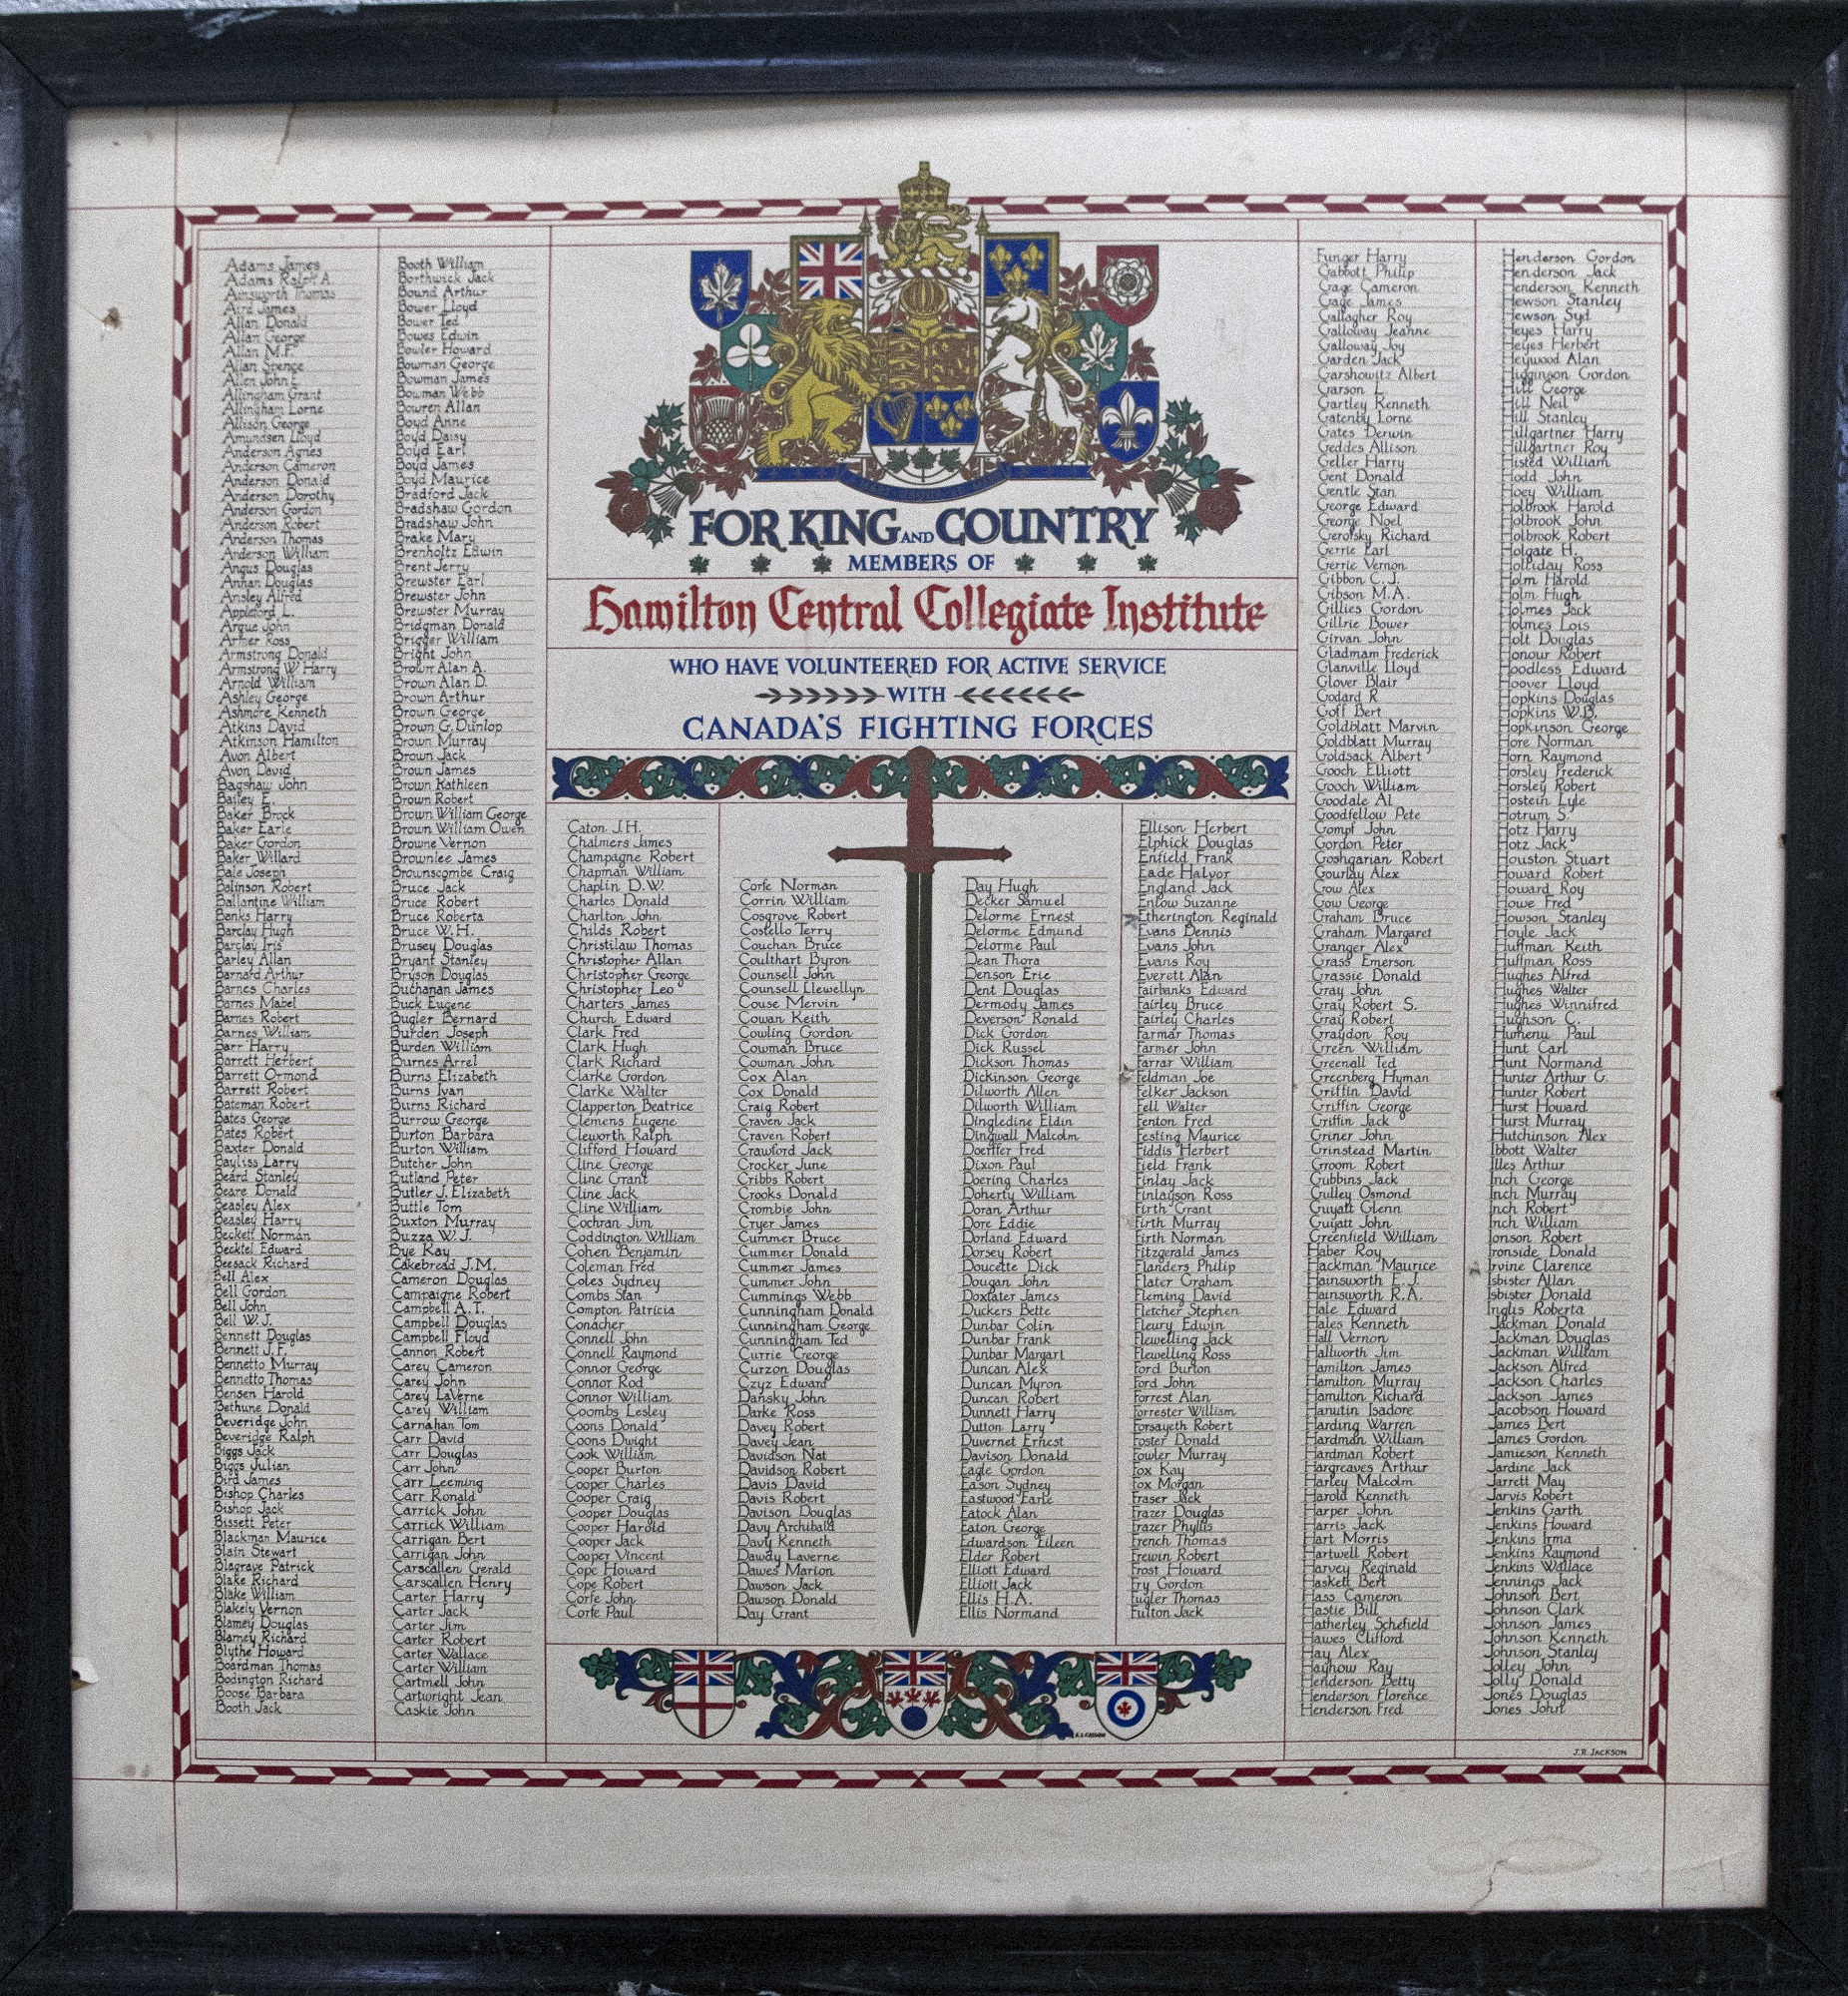 FOR KING AND COUNTRY
MEMBERS OF
Hamilton Central Collegiate Institute
WHO HAVE VOLUNTEERED FOR ACTIVE SERVICE
WITH
CANADA'S FIGHTING FORCES
Adams James
Adams Ralph A.
Ainsworth Thomas
Aird James
Allan Donald
Allan George
Allan M.F.
Allan Spence
Allen John E.
Allingham Grant
Allingham Lorne
Allison George
Amundsen Lloyd
Anderson Agnes
Anderson Cameron
Anderson Donald
Anderson Dorothy
Anderson Gordon
Anderson Robert
Anderson Thomas
Anderson William
Angus Douglas
Annan Douglas
Ansley Alfred
Appleford L.
Argue John
Armer Ross
Armstrong Donald
Armstrong W Harry
Arnold William
Ashley George
Ashmore Kenneth
Atkins David
Atkinson Hamilton
Avon Albert
Avon David
Bagshaw John
Bailey E.
Baker Brock
Baker Earle
Baker Gordon
Baker Willard
Bale Joseph
Balinson Robert
Ballantine William
Banks Harry
Barclay Hugh
Barclay Iris
Barley Allan
Barnard Arthur
Barnes Charles
Barnes Mabel
Barnes Robert
Barnes William
Barr Harry
Barrett Herbert
Barrett Ormond
Barrett Robert
Bateman Robert
Bates George
Bates Robert
Baxter Donald
Bayliss Larry
Beard Stanley
Beare Donald
Beasley Alex
Beasley Harry
Beckett Norman
Becktel Edward
Beesack Richard
Bell Alex
Bell Gordon
Bell John
Bell W.J.
Bennett Douglas
Bennett J.F.
Bennetto Murray
Bennetto Thomas
Bensen Harold
Bethune Donald
Beveridge John
Beveridge Ralph
Biggs Jack
Biggs Julian
Bird James
Bishop Charles
Bishop Jack
Bissett Peter
Blackman Maurice
Blain Stewart
Blagrave Patrick
Blake Richard
Blake William
Blakely Vernon
Blamey Douglas
Blamey Richard
Blythe Howard
Boardman Thomas
Bodington Richard
Boose Barbara
Booth Jack
Booth William
Borthwick Jack
Bound Arthur
Bower Lloyd
Bower Ted
Bowes Edwin
Bowler Howard
Bowman George
Bowman James
Bowman Webb
Bowren Allan
Boyd Anne
Boyd Daisy
Boyd Earl
Boyd James
Boyd Maurice
Bradford Jack
Bradshaw Gordon
Bradshaw John
Brake Mary
Brenholtz Edwin
Brent Jerry
Brewster Earl
Brewster John
Brewster Murray
Bridgman Donald
Brigger William
Bright John
Brown Alan A.
Brown Alan D.
Brown Arthur
Brown George
Brown G. Dunlop
Brown Murray
Brown Jack
Brown James
Brown Kathleen
Brown Robert
Brown William George
Brown William Owen
Browne Vernon
Brownlee James
Brownscombe Craig
Bruce Jack
Bruce Robert
Bruce Roberta
Bruce W.H.
Brusey Douglas
Bryant Stanley
Bryson Douglas
Buchanan James
Buck Eugene
Bugler Bernard
Burden Joseph
Burden William
Burnes Arrel
Burns Elizabeth
Burns Ivan
Burns Richard
Burrow George
Burton Barbara
Burton William
Butcher John
Butland Peter
Butler J. Elizabeth
Buttle Tom
Buxton Murray
Buzza W.J.
Bye Kay
Cakebread J.M.
Cameron Douglas
Campaigne Robert
Campbell A.T.
Campbell Douglas
Campbell Floyd
Cannon Robert
Carey Cameron
Carey John
Carey LaVerne
Carey William
Carnahan Tom
Carr David
Carr Douglas
Carr John
Carr Leeming
Carr Ronald
Carrick John
Carrick William
Carrigan Bert
Carrigan John
Carscallen Gerald
Carscallen Henry
Carter Harry
Carter Jack
Carter Jim
Carter Robert
Carter Wallace
Carter William
Cartmell John
Cartwright Jean
Caskie John
Caton J.H.
Chalmers James
Champagne Robert
Chapman William
Chaplin D.W.
Charles Donald
Charlton John
Childs Robert
Christilaw Thomas
Christopher Allan
Christopher George
Christopher Leo
Charters James
Church Edward
Clark Fred
Clark Hugh
Clark Richard
Clarke Gordon
Clarke Walter
Clapperton Beatrice
Clemens Eugene
Cleworth Ralph
Clifford Howard
Cline George
Cline Grant
Cline Jack
Cline William
Cochran Jim
Coddington William
Cohen Benjamin
Coleman Fred
Coles Sydney
Combs Stan
Compton Patricia
Conacher
Connell John
Connell Raymond
Connor George
Connor Rod
Connor William
Coombs Lesley
Coons Donald
Coons Dwight
Cook William
Cooper Burton
Cooper Charles
Cooper Craig
Cooper Douglas
Cooper Harold
Cooper Jack
Cooper Vincent
Cope Howard
Cope Robert
Corfe John
Corfe Paul
Corfe Norman
Corrin William
Cosgrove Robert
Costello Terry
Couchan Bruce
Coulthart Byron
Counsell John
Counsell Llewellyn
Couse Mervin
Cowan Keith
Cowling Gordon
Cowman Bruce
Cowman John
Cox Alan
Cox Donald
Craig Robert
Craven Jack
Craven Robert
Crawford Jack
Crocker June
Cribbs Robert
Crooks Donald
Crombie John
Cryer James
Cummer Bruce
Cummer Donald
Cummer James
Cummer John
Cummings Webb
Cunningham Donald
Cunningham George
Cunningham Ted
Currie George
Curzon Douglas
Czyz Edward
Dansky John
Darke Ross
Davey Robert
Davey Jean
Davidson Nat
Davidson Robert
Davis David
Davis Robert
Davison Douglas
Davy Archibald
Davy Kenneth
Dawdy Laverne
Dawes Marion
Dawson Jack
Dawson Donald
Day Grant
Day Hugh
Decker Samuel
Delorme Ernest
Delorme Edmund
Delorme Paul
Dean Thora
Denson Eric
Dent Douglas
Dermody James
Deverson Ronald
Dick Gordon
Dick Russel
Dickson Thomas
Dickinson George
Dilworth Allen
Dilworth William
Dingledine Eldin
Dingwall Malcolm
Doerffer Fred
Dixon Paul
Doering Charles
Doherty William
Doran Arthur
Dore Eddie
Dorland Edward
Dorsey Robert
Doucette Dick
Dougan John
Doxtater James
Duckers Bette
Dunbar Colin
Dunbar Frank
Dunbar Margart
Duncan Alex
Duncan Myron
Duncan Robert
Dunnett Harry
Dutton Larry
Duvernet Ernest
Davison Donald
Eagle Gordon
Eason Sydney
Eastwood Earle
Eatock Alan
Eaton George
Edwardson Eileen
Elder Robert
Elliott Edward
Elliott Jack
Ellis H.A.
Ellis Normand
Ellison Herbert
Elphick Douglas
Enfield Frank
Eade Halvor
England Jack
Enlow Suzanne
Etherington Reginald
Evans Dennis
Evans John
Evans Roy
Everett Alan
Fairbanks Edward
Fairley Bruce
Fairley Charles
Farmar Thomas
Farmer John
Farrar William
Feldman Joe
Felker Jackson
Fell Walter
Fenton Fred
Festing Maurice
Fiddis Herbert
Field Frank
Finlay Jack
Finlayson Ross
Firth Grant
Firth Murray
Firth Norman
Fitzgerald James
Flanders Philip
Flater Graham
Fleming David
Fletcher Stephen
Fleury Edwin
Flewelling Jack
Flewelling Ross
Ford Burton
Ford John
Forrest Alan
Forrester William
Forsayeth Robert
Foster Donald
Fowler Murray
Fox Kay
Fox Morgan
Fraser Jack
Frazer Douglas
Frazer Phyllis
French Thomas
Frewin Robert
Frost Howard
Fry Gordon
Fugler Thomas
Fulton Jack
Funger Harry
Gabbott Philip
Gage Cameron
Gage James
Gallagher Roy
Galloway Jeanne
Galloway Joy
Garden Jack
Garshowitz Albert
Garson L.
Gartley Kenneth
Gatenby Lorne
Gates Derwin
Geddes Allison
Geller Harry
Gent Donald
Gentle Stan
George Edward
George Noel
Gerofsky Richard
Gerrie Earl
Gerrie Vernon
Gibbon C.J.
Gibson M.A.
Gillies Gordon
Gillrie Bower
Girvan John
Gladmam Frederick
Glanville Lloyd
Glover Blair
Godard R
Goff Bert
Goldblatt Marvin
Goldblatt Murray
Goldsack Albert
Gooch Elliott
Gooch William
Goodale Al
Goodfellow Pete
Gompf John
Gordon Peter
Goshgarian Robert
Gourlay Alex
Gow Alex
Gow George
Graham Bruce
Graham Margaret
Granger Alex
Grass Emerson
Grassie Donald
Gray John
Gray Robert S.
Gray Robert
Graydon Roy
Green William
Greenall Ted
Greenberg Hyman
Griffin David
Griffin George
Griffin Jack
Griner John
Grinstead Martin
Groom Robert
Gubbins Jack
Gulley Osmond
Guyatt Glenn
Guyatt John
Greenfield William
Haber Roy
Hackman Maurice
Hainsworth E.J.
Hainsworth R.A.
Hale Edward
Hales Kenneth
Hall Vernon
Hallworth Jim
Hamilton James
Hamilton Murray
Hamilton Richard
Hanutin Isadore
Harding Warren
Hardman William
Hardman Robert
Hargreaves Arthur
Harley Malcolm
Harold Kenneth
Harper John
Harris Jack
Hart Morris
Hartwell Robert
Harvey Reginald
Haskett Bert
Hass Cameron
Hastie Bill
Hatherley Schefield
Hawes Clifford
Hay Alex
Hayhow Ray
Henderson Betty
Henderson Florence
Henderson Fred
Henderson Gordon
Henderson Jack
Henderson Kenneth
Hewson Stanley
Hewson Syd
Heyes Harry
Heyes Herbert
Heywood Alan
Higginson Gordon
Hill George
Hill Neil
Hill Stanley
Hillgartner Harry
Hillgartner Roy
Histed William
Hodd John
Hoey William
Holbrook Harold
Holbrook John
Holbrook Robert
Holgate H.
Holliday Ross
Holm Harold
Holm Hugh
Holmes Jack
Holmes Lois
Holt Douglas
Honour Robert
Hoodless Edward
Hoover Lloyd
Hopkins Douglas
Hopkins W.B.
Hopkinson George
Hore Norman
Horn Raymond
Horsley Frederick
Horsley Robert
Hostein Lyle
Hotrum S.
Hotz Harry
Hotz Jack
Houston Stuart
Howard Robert
Howard Roy
Howe Fred
Howson Stanley
Hoyle Jack
Huffman Keith
Huffman Ross
Hughes Alfred
Hughes Walter
Hughes Winnifred
Hughson C.
Humeniu Paul
Hunt Carl
Hunt Normand
Hunter Arthur G.
Hunter Robert
Hurst Howard
Hurst Murray
Hutchinson Alex
Ibbott Walter
Illes Arthur
Inch George
Inch Murray
Inch Robert
Inch William
Ionson Robert
Ironside Donald
Irvine Clarence
Isbister Allan
Isbister Donald
Inglis Roberta
Jackman Donald
Jackman Douglas
Jackman William
Jackson Alfred
Jackson Charles
Jackson James
Jacobson Howard
James Bert
James Gordon
Jamieson Kenneth
Jardine Jack
Jarrett May
Jarvis Robert
Jenkins Garth
Jenkins Howard
Jenkins Irma
Jenkins Raymond
Jenkins Wallace
Jennings Jack
Johnson Bert
Johnson Clark
Johnson James
Johnson Kenneth
Johnson Stanley
Jolley John
Jolly Donald
Jones Douglas
Jones John
J.R. JACKSON